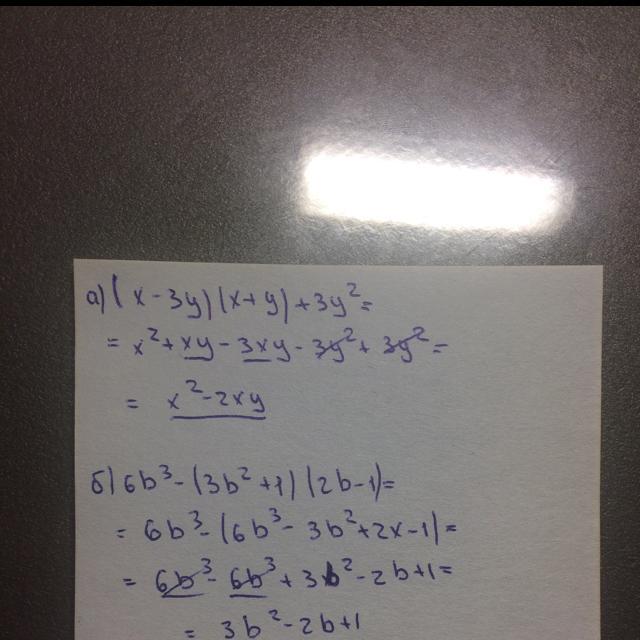 а) (x - 3y)(x + y) + 3y² =
= x² + xy - 3xy - 3y² + 3y² =
= x² - 2xy
б) 6b³ - (3b² + 1)(2b - 1) =
= 6b³ - (6b³ - 3b² + 2x - 1) =
= 6b³ - 6b³ + 3b² - 2b + 1 =
= 3b² - 2b + 1